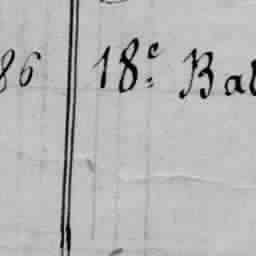 86 18e. Bat